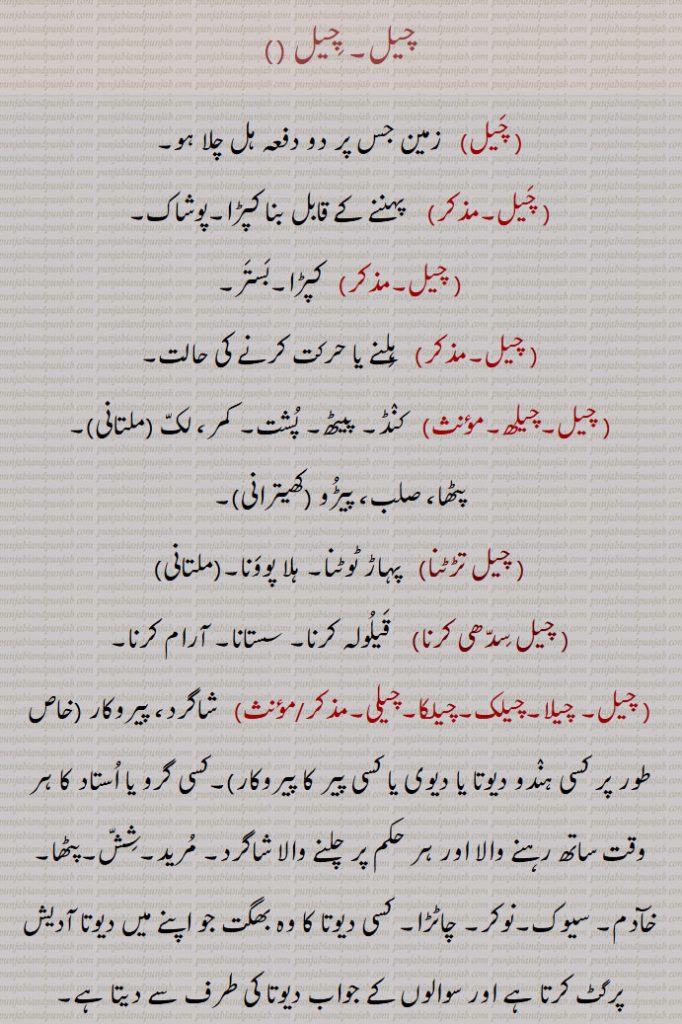 چیل۔ چِیل ()
(چَیل) زمین جس پر دو دفعہ ہل چلا ہو۔
(چَیل۔مذکر) پہننے کے قابل بنا کپڑا۔پوشاک۔
(چیل۔مذکر) کپڑا۔بَستَر۔
(چیل۔مذکر) ہِلنے یا حرکت کرنے کی حالت۔
(چیل۔چیلھ۔مؤنث) کنْڈ۔ پیٹھ۔ پُشت۔ کمر، لکّ (ملتانی)۔
پٹھا، صلب، پیڑُو (کھیترانی)۔
(چیل ترُٹنا) پہاڑ ٹوٹنا۔ ہلا پووَنا۔(ملتانی)
(چیل سِدّھی کرنا) قَیلُولہ کرنا۔ سستانا۔ آرام کرنا۔
(چیل۔ چیلا۔چیلک۔چیلکا۔چیلی۔مذکر/مؤنث) شاگرد، پیروکار (خاص
طور پر کسی ہنْدو دیوتا یا دیوی یا کسی پیر کا پیروکار)۔کسی گرو یا اُستاد کا ہر
وقت ساتھ رہنے والا اور ہر حکم پر چلنے والا شاگرد۔ مُرید۔شِشّ۔پٹھا۔
خآدم۔ سیوک۔نوکر۔ چاٹڑا۔ کسی دیوتا کا وہ بھگت جو اپنے میں دیوتا آدیش
پرگٹ کرتا ہے اور سوالوں کے جواب دیوتا کی طرف سے دیتا ہے۔